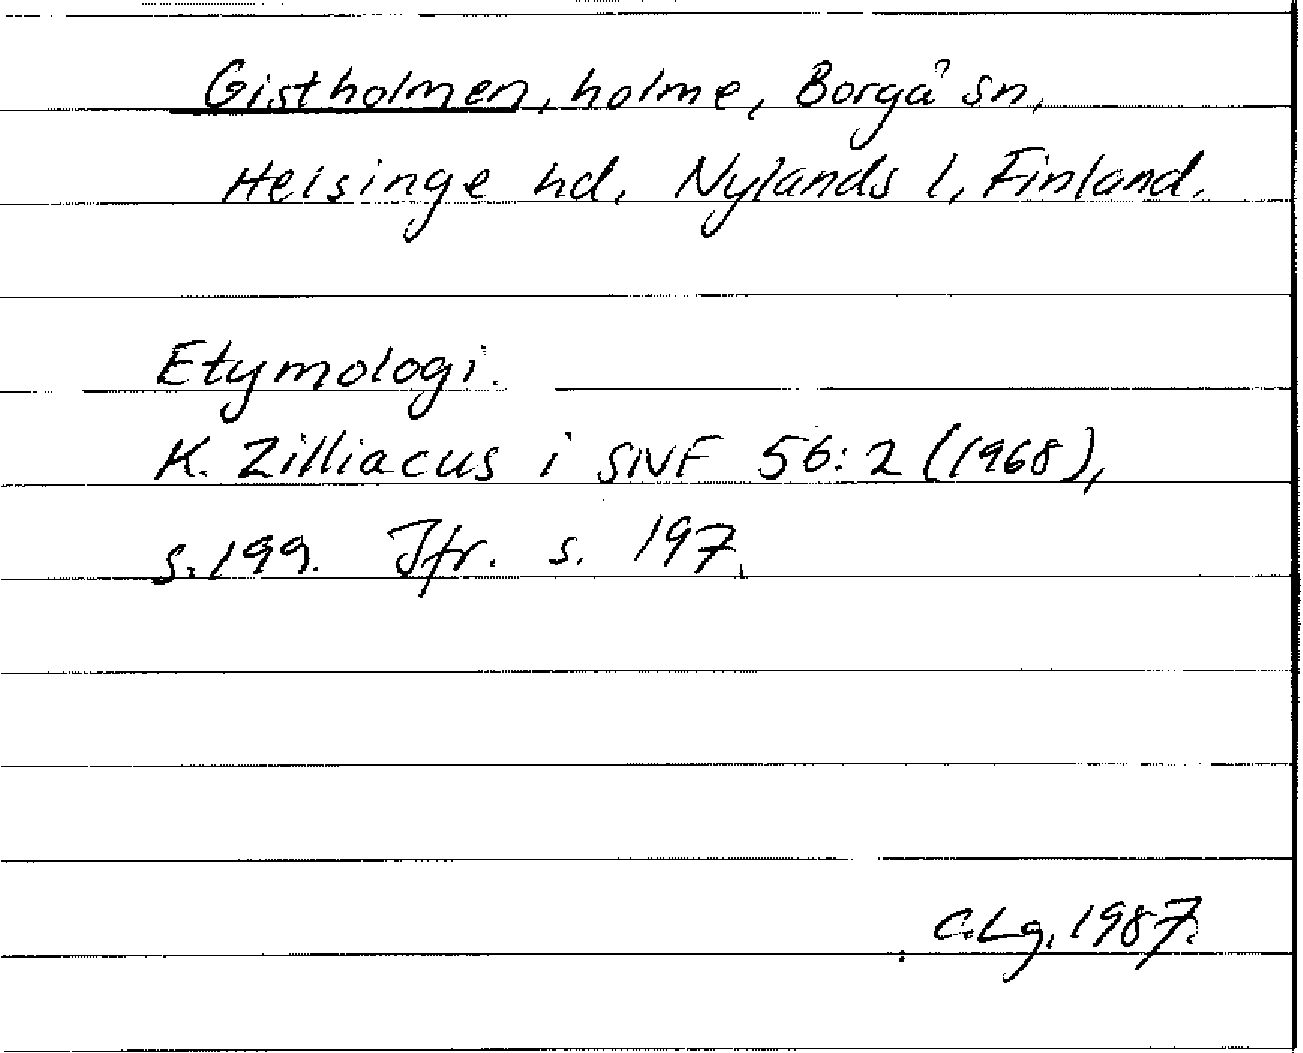 Gistholmen, holme, Borgå sn,
Helsinge hd, Nylands l, Finland.
Etymologi.
K. Zilliacus i SNF 56:2 (1968),
s. 199. Jfr. s. 197.
C.Lg. 1987.